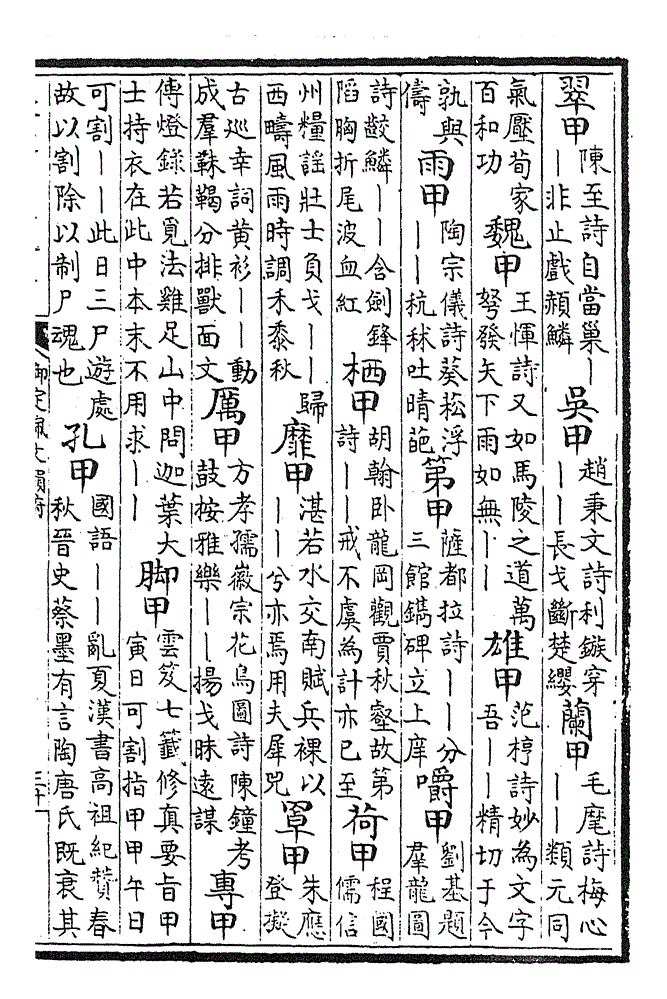 翠甲 陳至詩自當巢丨丨非止戲頳鱗 吳甲 趙秉文詩利鏃穿丨丨長戈斷楚纓 蘭甲 毛麾詩梅心丨丨類元同
氣壓荀家百和功 魏甲 王惲詩又如馬陵之道萬弩發矢下雨如無丨丨 雄甲 范梈詩妙為文字吾丨丨精切于今
孰與儔 雨甲 陶宗儀詩葵菘浮丨丨杭秫吐晴葩 第甲 薩都拉詩丨丨分三館鐫碑立上庠 嚼甲 劉基題羣龍圖
詩齩鱗丨丨含劍鋒陷胸折尾波血紅 栖甲 胡翰卧龍岡觀賈秋壑故第詩丨丨戒不虞為計亦已至 荷甲 程國儒信
州糧謡壯士負戈丨丨歸西疇風雨時調禾黍秋 靡甲 湛若水交南賦兵裸以丨丨兮亦焉用夫犀兕 罩甲 朱應登擬
古巡幸詞黄衫丨丨動成羣靺鞨分排獸面文 厲甲 方孝孺徽宗花鳥圖詩陳鐘考鼓按雅樂丨丨揚戈昧遠謀 專甲
傳燈錄若覓法雞足山中問迦葉大士持衣在此中本末不用求丨丨 脚甲 雲笈七籤修真要旨甲寅日可割指甲甲午日
可割丨丨此日三尸遊處故以割除以制尸魂也 孔甲 國語丨丨亂夏漢書高祖紀贊春秋晉史蔡墨有言陶唐氏既衰其
御定佩文韻府